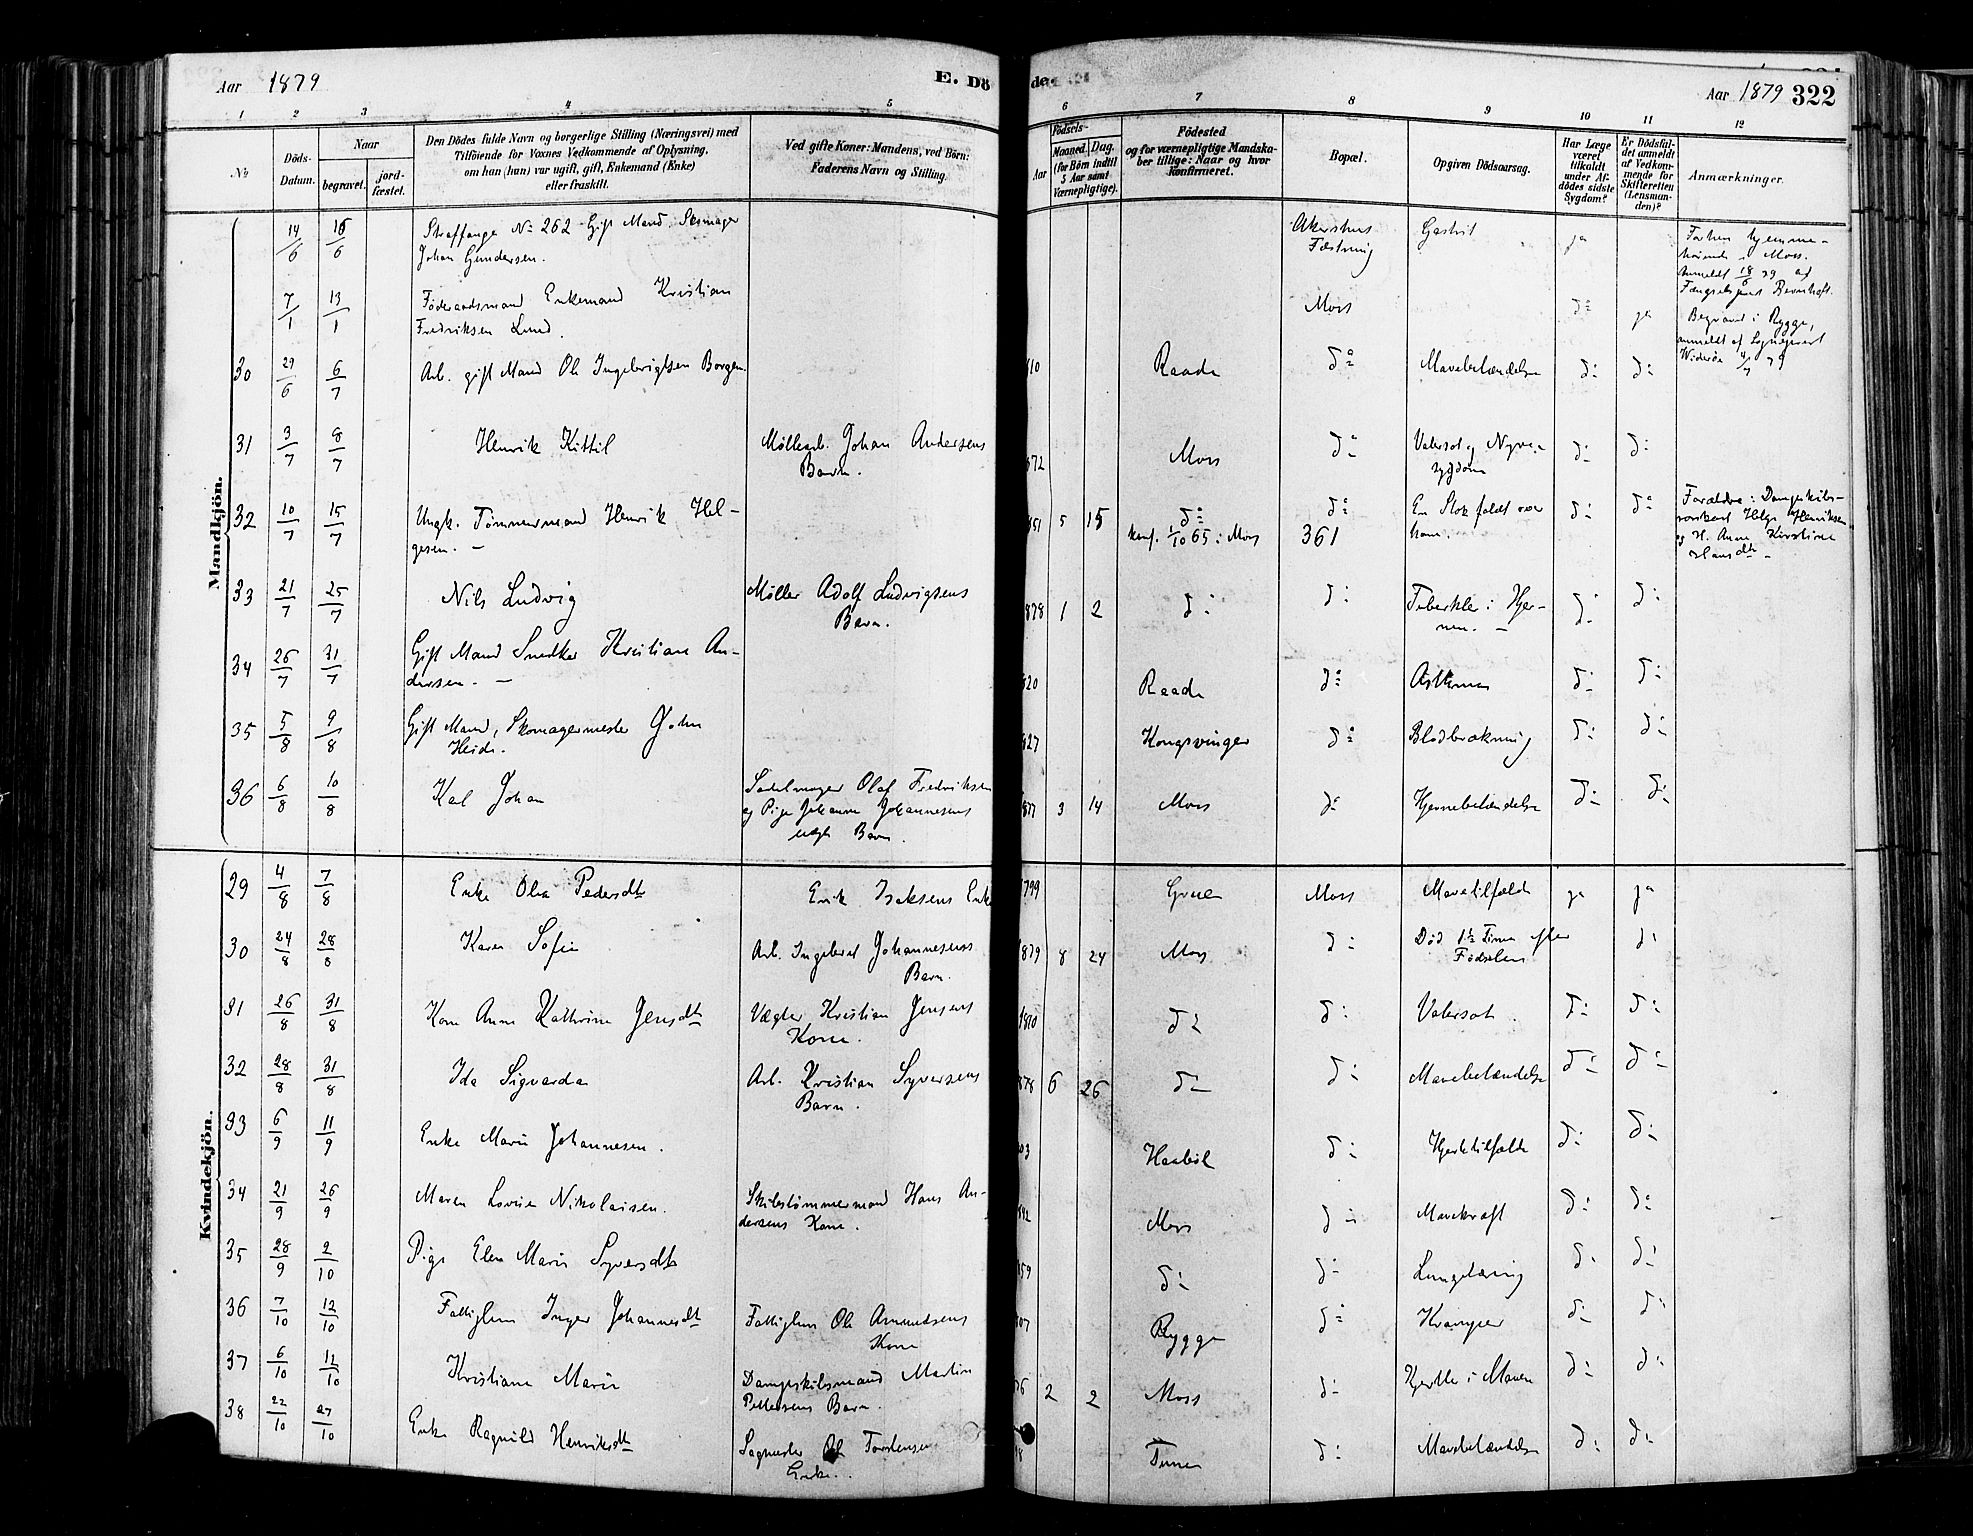 Aar 1879
E. Dö
de
Aar 1879 322
1 2 3 4 5 6 7 8 9 10 11 12
No
Döds-Datum.
Naar
begravet.
jord-fæstet.
Den Dödes fulde Navn og borgerlige Stilling (Næringsvei) med
Tilföiende for Voxnes Vedkommende af Oplysning,
om han (hun) var ugift, gift, Enkemand (Enke)
eller fraskilt.
Ved gifte Koner: Mandens, ved Börn:
Faderens Navn og Stilling.
Födsels-
Aar
Maaned.
Dag.
(for Börn indtil
5 Aar samt
Værnepligtige).
Födested
og for værnepligtige Mandska-
ber tillige: Naar og hvor
Konfirmeret.
Bopæl.
Opgiven Dödsaarsag.
Har Læge
været
tilkaldt
under Af-
dödes sidste
Sygdom?
Er Dödsfal-
det anmeldt
af Vedkom-
mende for
Skifteretten
(Lensman-
den)?
Anmærkninger.
Mandkjön.
14/6 16/6 Straffange No 262 Gift Mand Skomager
Johan Gundersen.
Akershus
Fæstning
Gastrit ja
Forhen hjemme-
hörende i Moss.
7/1 13/1 Föderaadsmand Enkemand Kristian
Fredriksen Lund.
Moss do ja
Begravet i Rygge,
30 29/6 6/7 Arb. gift Mand Ole Ingebrigtsen Borgen 10 Raade do Mavebetændelse do do
31 3/7 8/7 Henrik Kittil Møllearb. Johan Andersens
Barn.
872 Moss do Vatersot og Nyre-
sygdom do do
32 10/7 15/7 Ungk. Tømmermand Henrik Hel-
gesen. 851 5 15 do
konf. 1/10 65 i Moss
do
361
En Stok faldt over
ham. do do
Forældre: Dampskibs-
Helge Henriksen
og H. Anne Kirstine
Hansdtr
33 21/7 25/7 Nils Ludvig Møller Adolf Ludvigsens
Barn.
878 1 2 do do Tuberkler i Hjer-
nen. do do
34 26/7 31/7 Gift Mand Snedker Kristian An-
dersen. 820 Raade do Asthma do do
35 5/8 9/8 Gift Mand, Skomagermester John
Heide. 827 Kongsvinger do Blodbrækning do do
36 6/8 10/8 Karl Johan Sadelmager Olaf Fredriksen
og Pige Johanne Johannesens
uægte Barn.
877 3 14 Moss do Hjernebetændelse do do
Kvindekjön.
29 4/8 7/8 Enke Olea Pedersdtr Erik Isaksens Enke 1799 Grue Moss Mavetilfælde ja ja
30 24/8 28/8 Karen Sofie Arb. Ingebret Johannesens
Barn.
1879 8 24 Moss do Død 1½ Time efter
Fødselen do
31 26/8 31/8 Kone Anne Kathrine Jensdtr Vægter Kristian Jensens
Kone.
do do Vatersot. do do
32 28/8 31/8 Ida Sigvarda Arb. Kristian Syversens
Barn.
878 6 26 do do Mavebetændelse do do
33 6/9 11/9 Enke Marie Johannesen. 03 Haabøl do Hjertetilfælde do do
34 21/9 26/9 Maren Lovise Nikolaisen. Skibstømmermand Hans An-
dersens Kone.
Moss do Mavekræft do do
35 28/9 2/10 Pige Elen Marie Syversdtr 859 do do Lungetæring do do
36 7/10 12/10 Fattiglem Inger Johannesdtr Fattiglem Ole Amundsens
Kone
807 Rygge do Kramper do do
37 6/10 12/10 Kristiane Marie Dampskibsmand Martin
Pettersens Barn.
76 2 2 Moss do Kjertler i Maven do do
38 22/10 27/10 Enke Ragnild Henriksdtr Sagmester Ole Torstensens
Enke.
Tune do Mavebetændelse do do